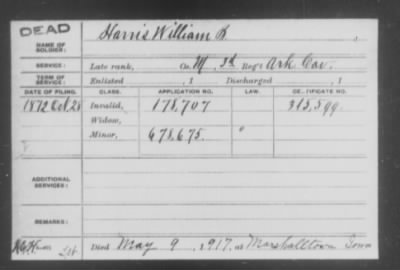 DEAD
NAME OF SOLDIER: Harris William B
SERVICE: Late rank, Co. M, 3d Reg't Ark Cav.
TERM OF SERVICE: Enlisted , 1 Discharged , 1
DATE OF FILING. CLASS. APPLICATION NO. LAW. CERTIFICATE NO.
1872 Oct, 28 Invalid, 178,707 315,599
Widow,
Minor, 678,675. "
ADDITIONAL SERVICES:
REMARKS:
Died May 9, 1917, at Marshalltown Iowa